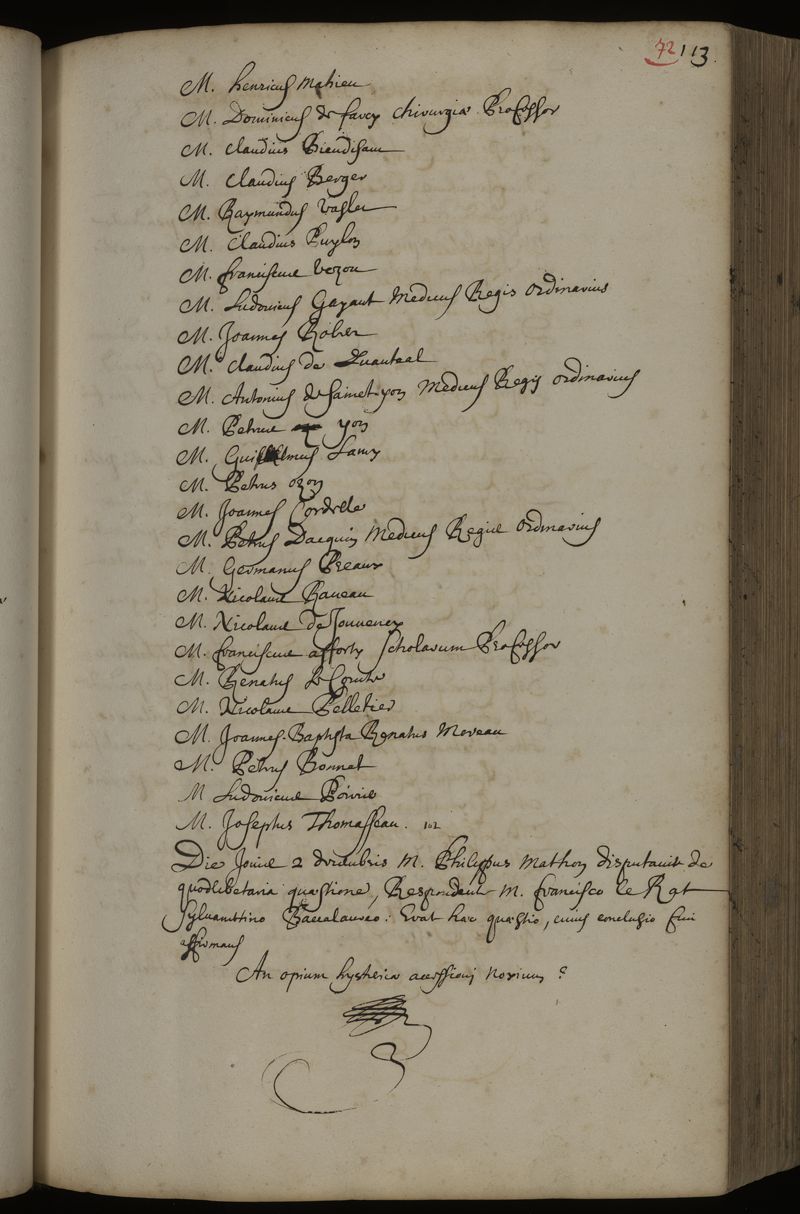 72 113.
M. henricus Mahieu
M. Dominicus de farcy chirurgiæ Professor
M. Claudius Biendisant
M. Claudius Berger
M. Raymundus
M. Claudius Puylon
M. franciscus Vezou
M. Ludovicus Gayant Medicus Regis Ordinarius
M. Joannes Robert
M. Claudius de
M. Antonius de Sainct-yon Medicus Regis ordinarius
M. Petrus yon
M. Guillelmus Lamy
M. Petrus ozon
M. Joannes Cordelle
M. Petrus Dacquin Medicus Regius Ordinarius
M. Germanus Preaux
M. Nicolaus
M. Nicolaus De Jouvency
M. franciscus afforty scholarum Professor
M. Renatus Le Comte
M. Nicolaus Pelletier
M. Joannes-Baptista Renatus Moreau
M. Petrus Bonnet
M Ludovicus Poirier
M. Josephus Thomasseau. 102
Die Jovis 2 decembris M. Philippus Mathon disputavit de
quodlibetaria quæstione, Respondente M. francisco le Rat
Sylvanectino Baccalaureo. Erat hæc quæstio, cuius conclusio fuit
affirmans
An opium hystericæ accessioni noxium ?